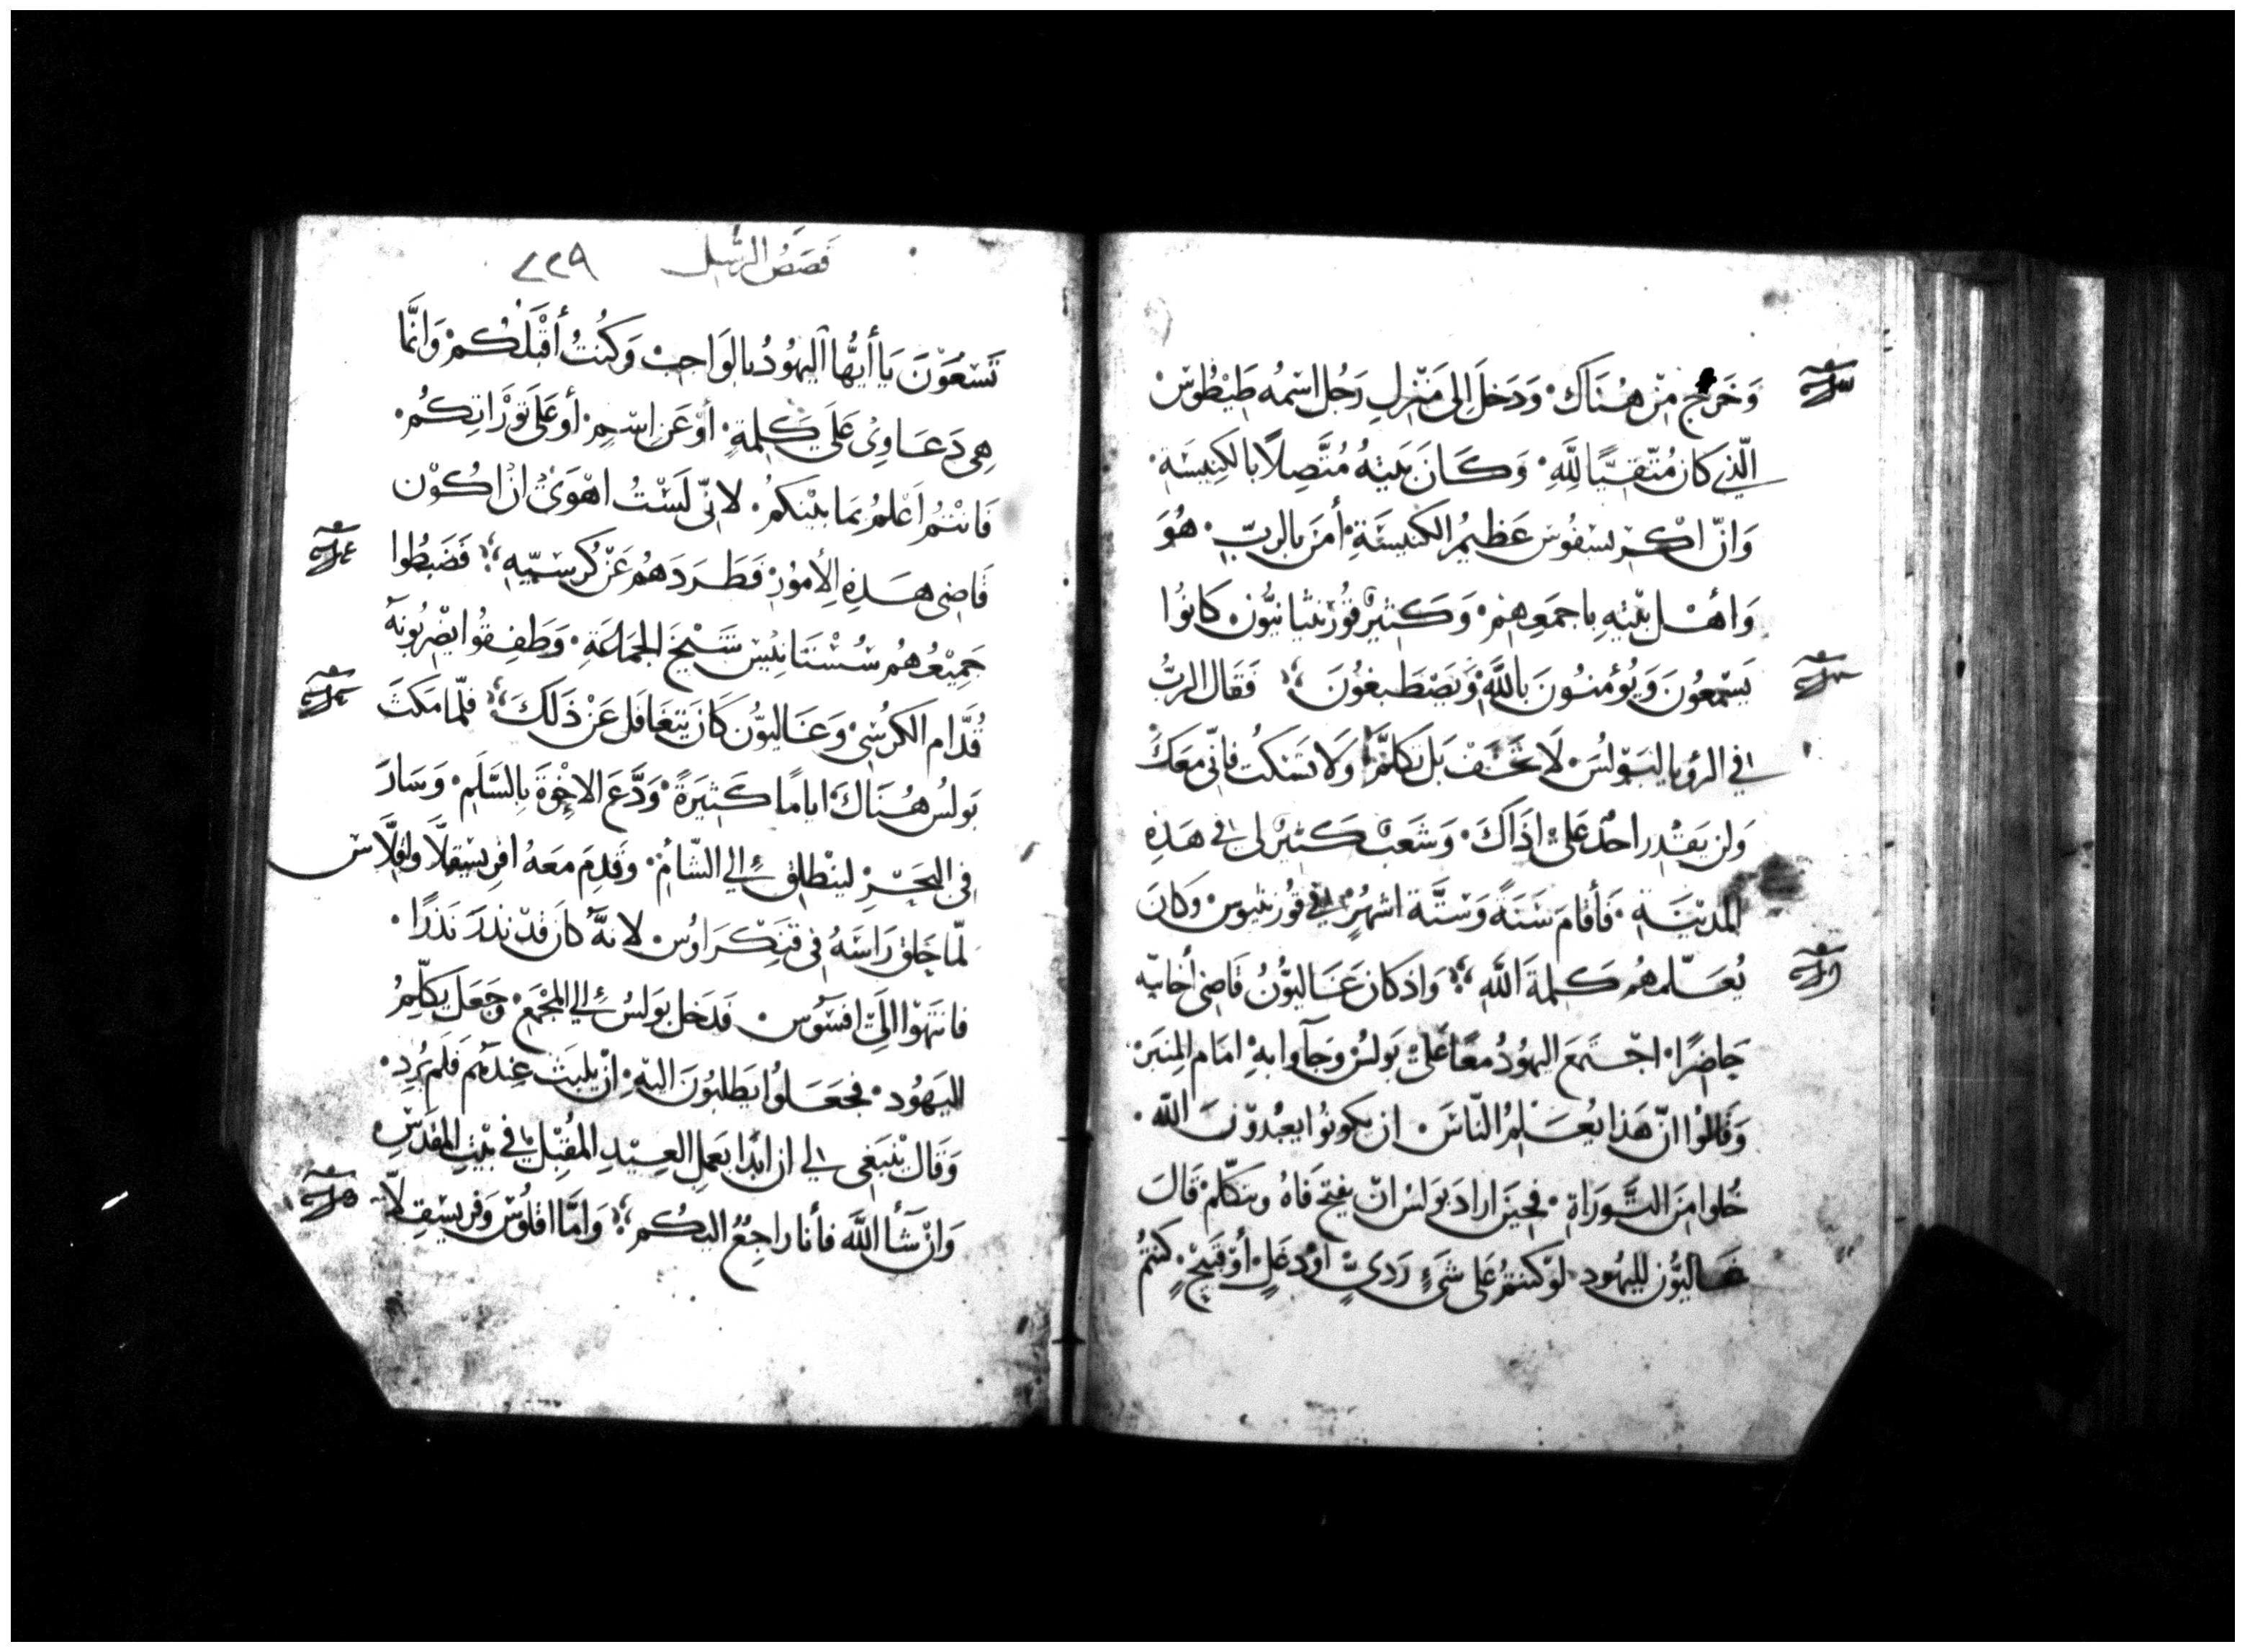 وَخَرَج مِنْ هُنَاكَ. وَدَخَلَ إلى مَنْزِلِ رَجُل اسْمُه طَيْطُوسْ
الّذِي كان مُتّقِيًا لِلَّهِ. وَكَانَ بَيتهُ مُتَّصِلاً بالكنِيسَةِ.
وَانّ اكْرِسْفُوسَ عَظِيمُ الكَنيسَةِ. أمَنَ بالربّ. هُوَ
وَاهْل بيْتِهِ باجمَعِهِمْ. وَكَثيرٌ قُورْنثيانيُّون كانُوا
يَسْمعُونَ وَيُؤمنُونَ باللَّهِ وَيَصْطَبغُونَ فَقَال الربُّ
في الرؤيا لبَوْلُسَ. لَا تَخَفْ بَل تكلمْ وَلا تَسْكتْ فانّى مَعَكَ
وَلن يَقْدر احدٌ عَلى اذَاكَ. وَشَعبٌ كَثيرٌ لى في هَذِهِ
المدينَةِ. فَأقامَ سَنَةً وَستَّة اشهُرٍ في قُورنثيوس وَكانَ
يُعَلّمهُم كلمةَ اللَّهِ وَاذ كان غَاليُّونُ قَاضِى أخَائيه
حَاضِرًا. اجْتَمَعَ اليهُودُ معًا عَلى بَولسُ وَجآوا بهِ امَام المِنبَر
وَقَالوُا انّ هَذا يُعَلمُ النّاسَ. ان يكونُوا يعبُدوّنَ اللَّه.
خُلوا منَ التَّورَاةِ. فحينَ ارادَ بَولسْ انْ يفتح فَاهُ ويتكلّم قَالَ
غَاليُّون لليهُود. لَوْ كنتمُ عَلى شَيءٍ رَدىٍّ أوْ دغَلٍ أوْ قَبيح كنتُمْ
قَصَصُ الرسُل ٢٢٩
تَسْعَوْنَ يَا أيُّها اليهُودُ بالوَاجبْ وَكنُتُ أقْبَلُكُمْ وَانَّما
هِى دَعَاوِىْ عَلَى كلمةٍ. أوْ عَن اسْمٍ. أوْ عَلَى تَوْرَاتِكُمْ.
فَانتُمْ اعْلَمُ بمَا بيْنكمُ. لانّى لَسْتُ اهْوَىْ انْ اكُوْن
قَاضِى هَذِهِ الأمُورْ فَطَرَدَهُم عَنْ كُرسيّهِ فَضَبطُوا
جَمِيْعُهُم سُسْتَانيْسَ شَيْخَ الجمَاعَةِ. وَطَفِقوُا يَضْرِبُونَهُ
قُدّام الكُرسّى وَغَاليُّون كَانَ يتغَافَل عَنْ ذَلكَ فلّما مَكثَ
بَولسُ هُنَاكَ. اياماً كَثيرَةً. وَدَّعَ الاخْوَةَ بِالسَّلَم. وَسَارَ
فِى البَحْرِ لينْطلِق إلى الشّامْ. وَقَدِمَ معَهُ افرِيسْقلّا وَاقلّاسْ
لمّا حَلق رَاسَهُ فى قنكراوُس لانهُ كان قدْ نَذَرَ نَذرًا.
فانتهَوْا الَى افسَوس فَدَخل بَولسُ إلى المجْمَعِ وَجَعَلَ يكلّمُ
اليَهُود. فجَعَلوُا يَطلبُونَ اليْهِ. انْ يلبَثَ عِندَهُم فَلم يُرِد.
وَقَال ينبَغِى لي ان ابدًا يَعمل العِيْدِ المُقبِل في بَيتِ المَقدَسِ
وَانْ شآ اللَّه فأنا رَاجعٌ اليكُم وَامّا اقلُوسْ وَفريسْقلّا